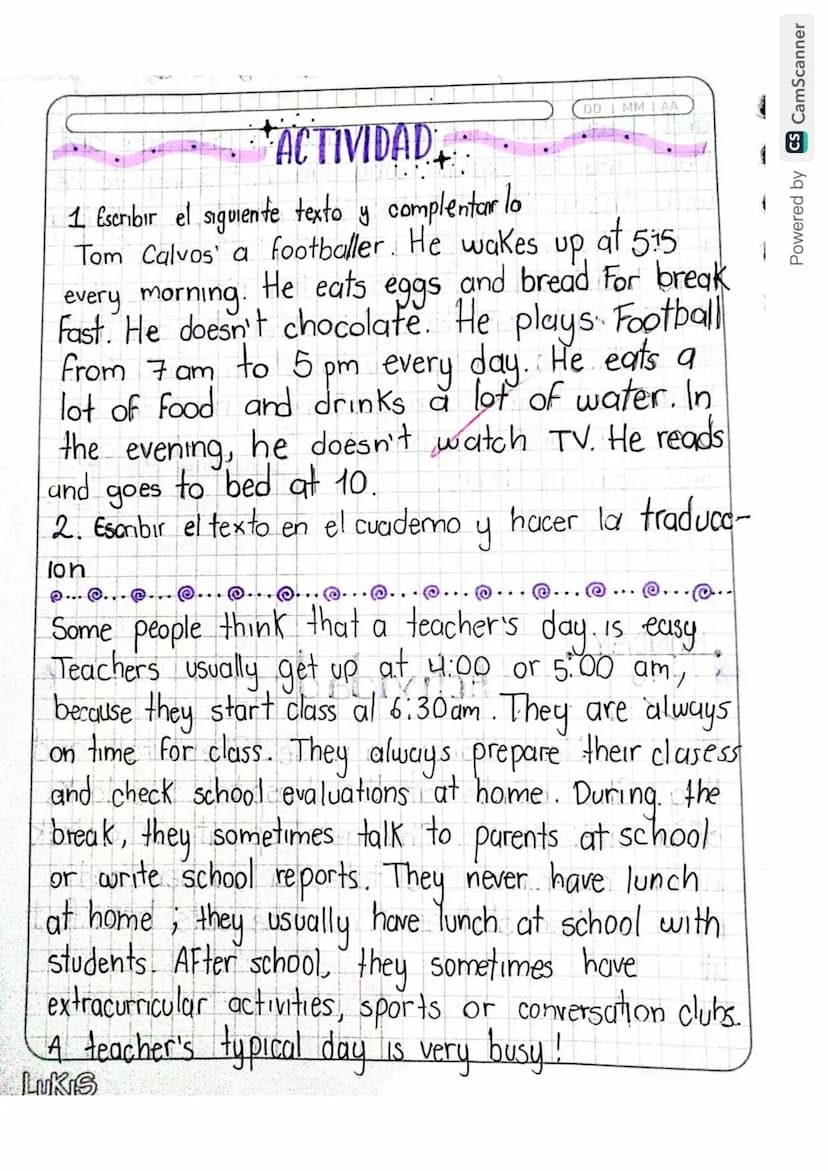 DD | MM | AA
ACTIVIDAD
1 Escribir el siguiente texto y complentar lo
Tom Calvos' a footballer. He wakes up at 5:15
every morning. He eats eggs and bread For break
fast. He doesn't chocolate. He plays Football
from 7 am to 5 pm every day. He eats a
lot of food and drinks a lot of water. In
the evening, he doesn't watch TV. He reads
and goes to bed at 10.
2. Escribir el texto en el cuaderno y hacer la traducc-
ion
Some people think that a teacher's day is easy
Teachers usually get up at 4:00 or 5:00 am,
because they start class al 6:30am. They are always
on time for class. They always prepare their clasess
and check school evaluations at home. During the
break, they sometimes talk to parents at school
or write school reports. They never have lunch
at home; they usually have lunch at school with
students. AFter school, they sometimes have
extracurricular activities, sports or conversation clubs.
A teacher's typical day is very busy!
LUKIS
Powered by CS CamScanner